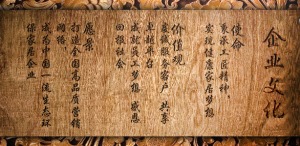 企业文化
使命
秉承工匠精神，
实现健康家居梦想
价值观
服务客户 共享
卓越平台
成就员工梦想 感恩
回报社会
愿景
打造全国高品质营销
网络
成为中国一流生态环
保家居企业